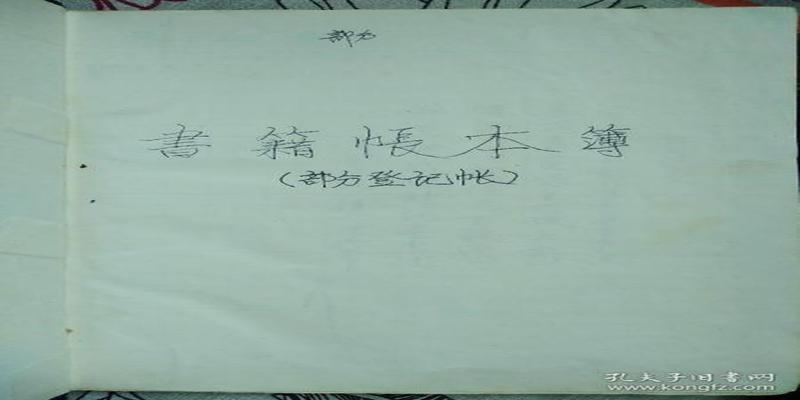 部分
書籍帳本簿
(部分登记帐)
孔夫子旧书网
www.kongfz.com